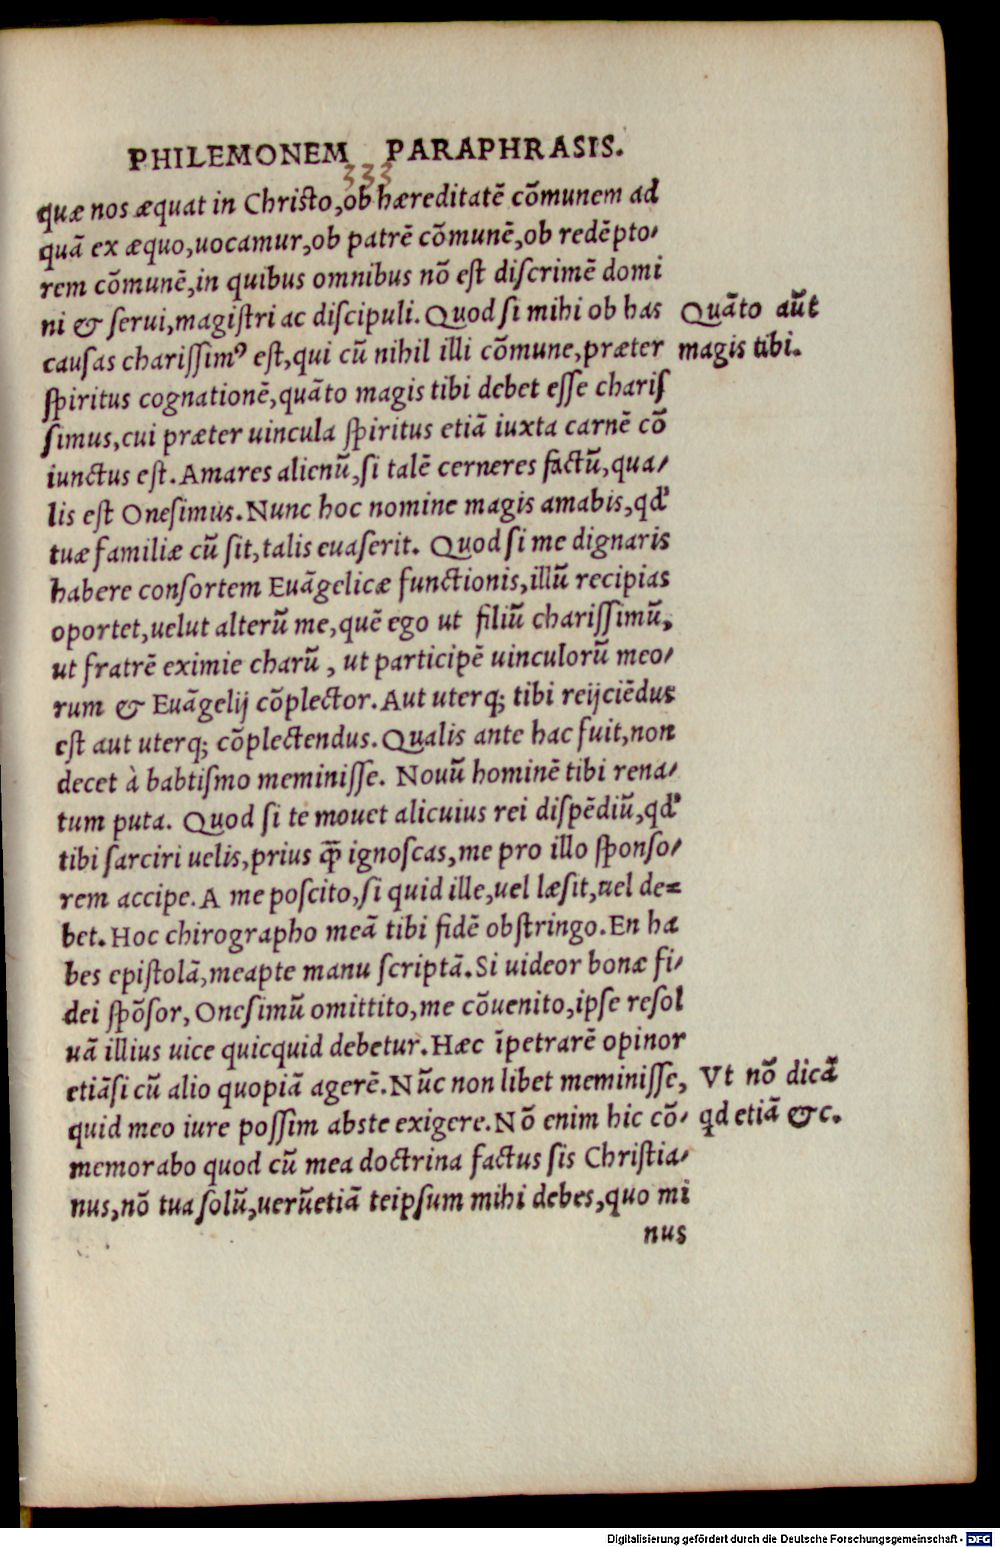 PHILEMONEM PARAPHRASIS.
333
quæ nos æquat in Christo,ob hæreditatē cōmunem ad
quā ex æquo,uocamur,ob patrē cōmunē,ob redēpto-
rem cōmunē,in quibus omnibus nō est discrimē domi
ni & serui,magistri ac discipuli. Quod si mihi ob has
Quāto aūt
causas charissimꝰ est,qui cū nihil illi cōmune,præter
magis tibi.
spiritus cognationē,quāto magis tibi debet esse charis
simus,cui præter uincula spiritus etiā iuxta carnē cō
iunctus est. Amares alienū,si talē cerneres factū,qua-
lis est Onesimus. Nunc hoc nomine magis amabis,qd'
tuæ familiæ cū sit,talis euaserit. Quod si me dignaris
habere consortem Euāgelicæ functionis,illū recipias
oportet,uelut alterū me,quē ego ut filiū charissimū,
ut fratrē eximie charū, ut participē uinculorū meo-
rum & Euāgelij cōplector. Aut uterq; tibi reijciēdus
est aut uterq; cōplectendus. Qualis ante hac fuit,non
decet à babtismo meminisse. Nouū hominē tibi rena-
tum puta. Quod si te mouet alicuius rei dispēdiū,qd'
tibi sarciri uelis,prius qȝ̄ ignoscas,me pro illo sponso-
rem accipe. A me poscito,si quid ille,uel læsit,uel de=
bet. Hoc chirographo meā tibi fidē obstringo. En ha
bes epistolā,meapte manu scriptā. Si uideor bonæ fi-
dei spōsor, Onesimū omittito,me cōuenito,ipse resol
uā illius uice quicquid debetur. Hæc īpetrarē opinor
etiāsi cū alio quopiā agerē. Nūc non libet meminisse,
Vt nō dicā
quid meo iure possim abste exigere. Nō enim hic cō-
qd etiā &c.
memorabo quod cū mea doctrina factus sis Christia-
nus,nō tua solū,uerūetiā teipsum mihi debes,quo mi
nus
Digitalisierung gefördert durch die Deutsche Forschungsgemeinschaft - DFG